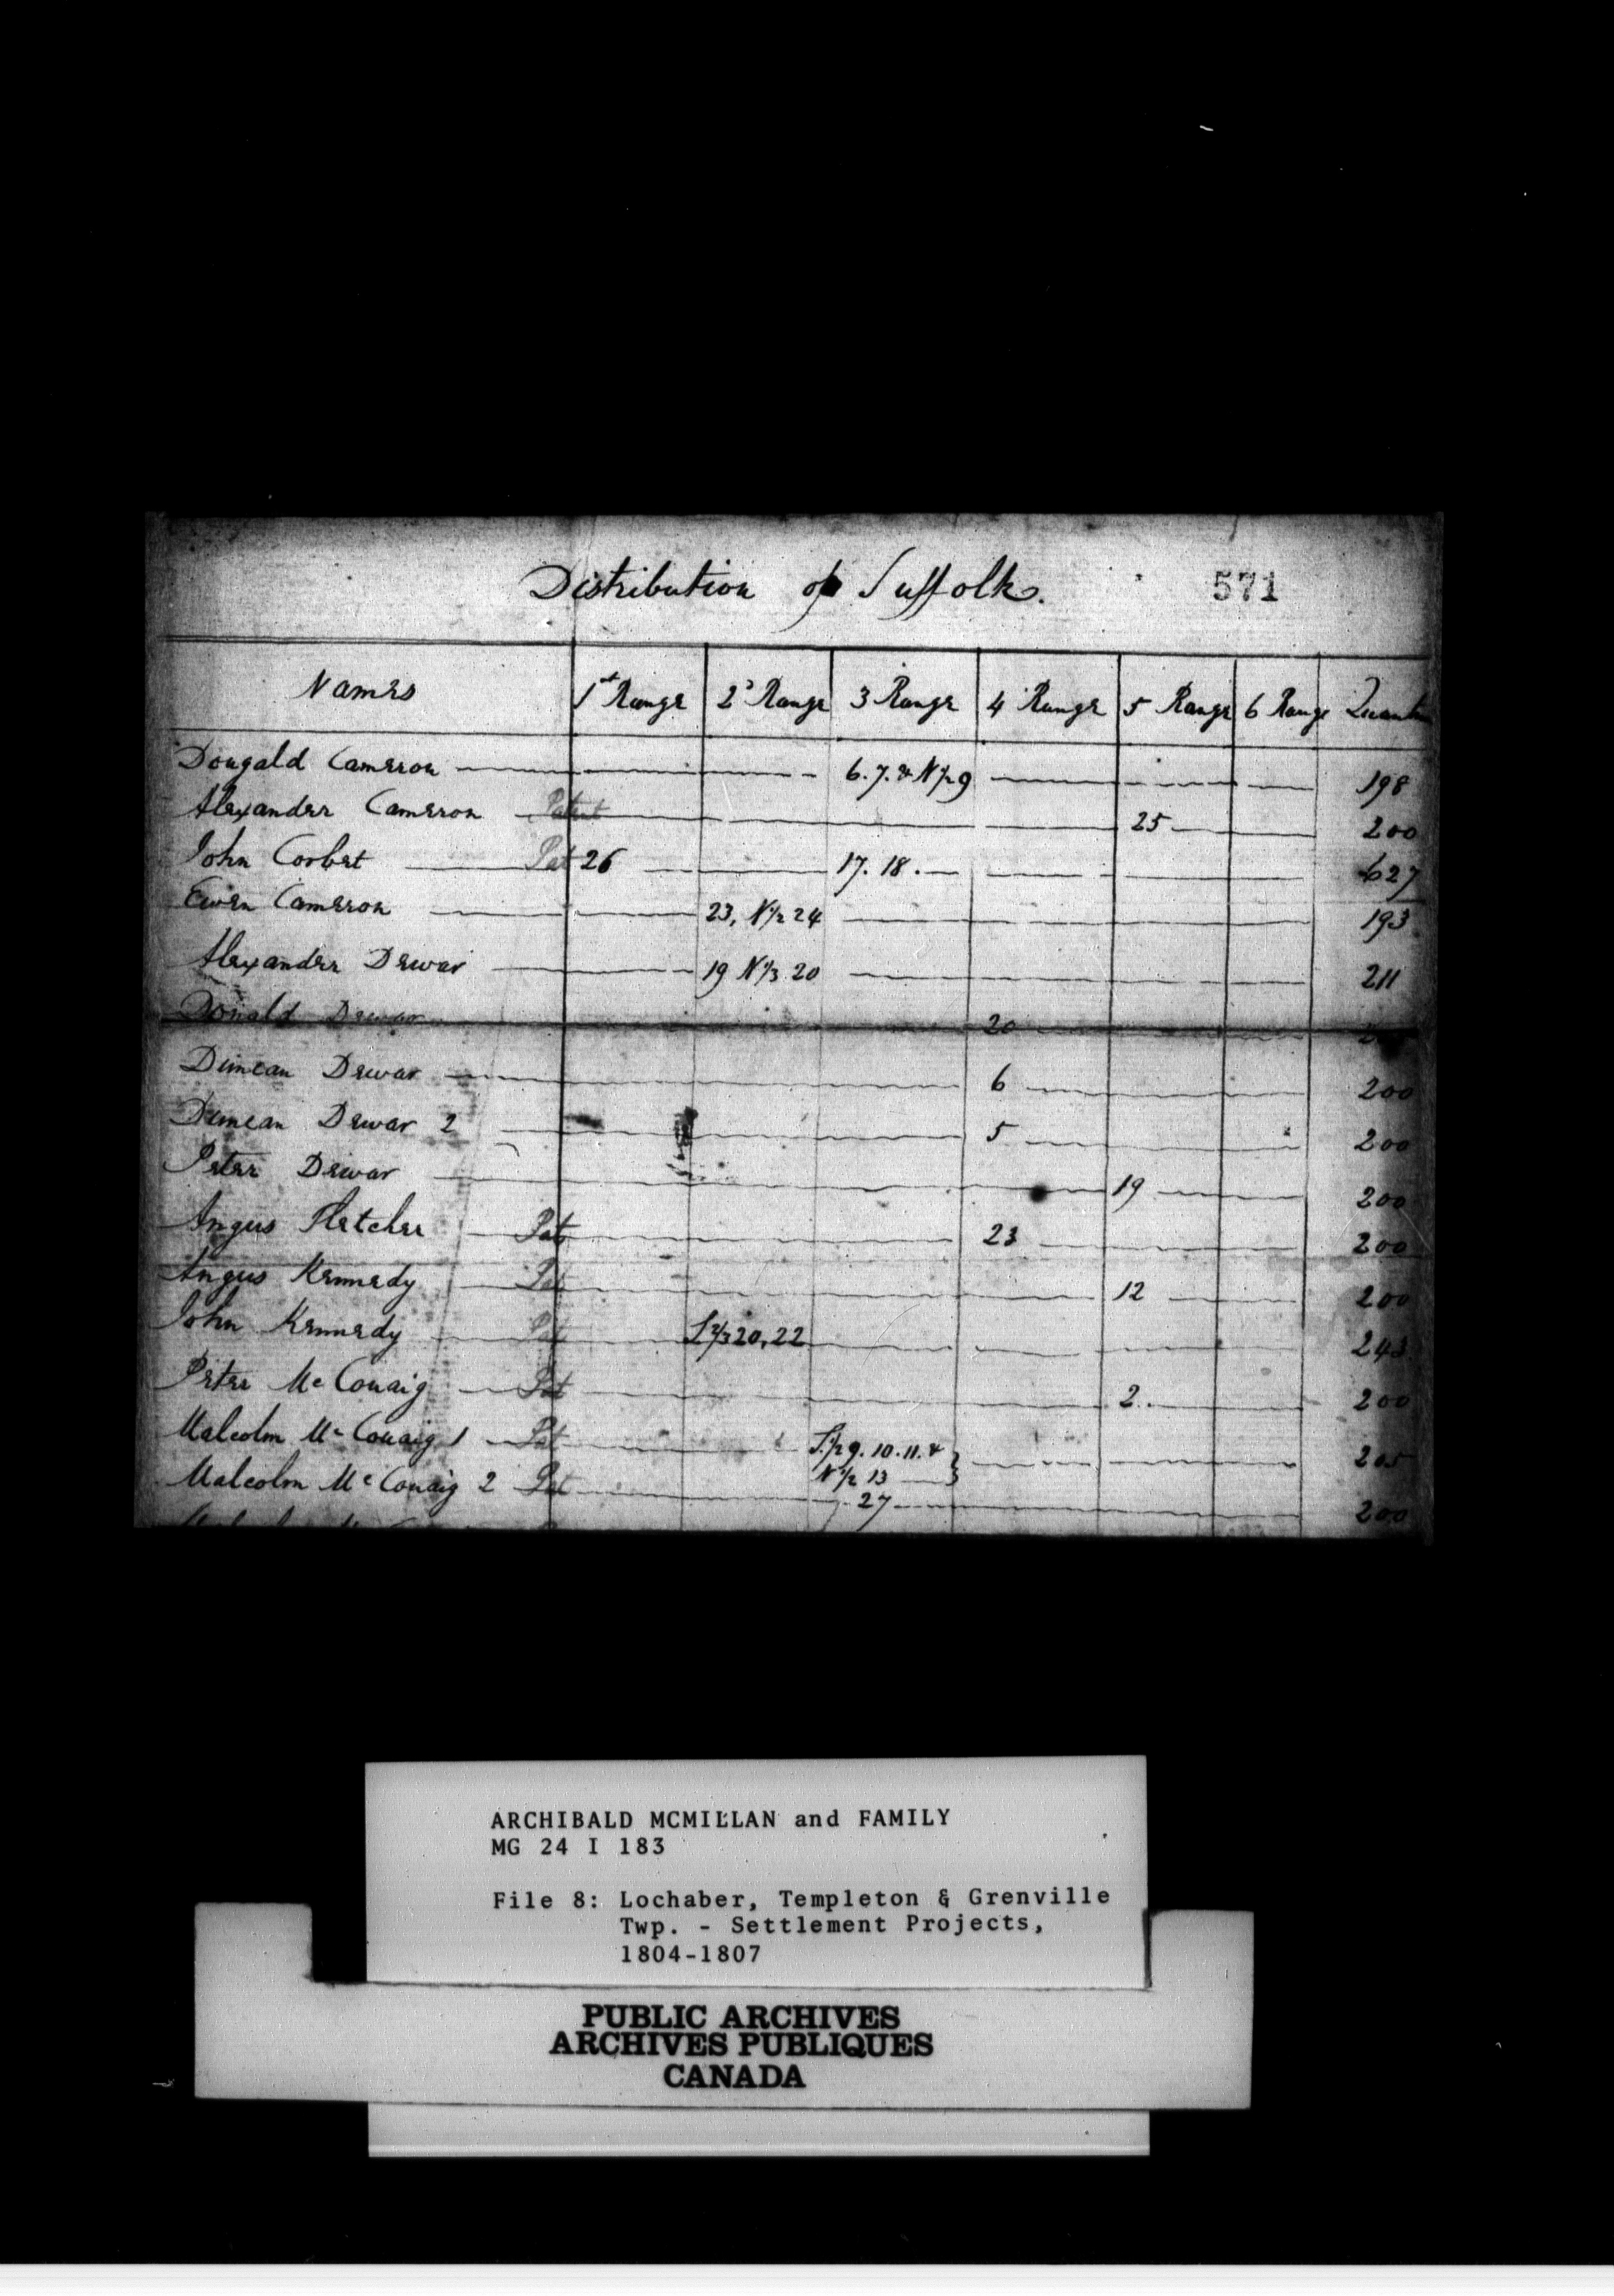 Distribution of Suffolk. 571
Names 1st Range 2d Range 3 Range 4 Range 5 Range 6 Range
Dougald Cameron 6. 7. & N 1/2 9 198
Alexander Cameron Patent 25 200
John Corbet Pat 26 17. 18. 627
Ewen Cameron 23, N 1/2 24 193
Alexander Dewar 19 N 1/3 20 211
Donald Dewar 20
Duncan Dewar 6 200
Duncan Dewar 2 5 200
Peter Dewar 19 200
Angus Fletcher Pat 23 200
Angus Kennedy Pat 12 200
John Kennedy Pat S 2/3 20, 22 243
Peter Mc Couaig Pat 2. 200
Malcolm Mc Couaig 1 Pat S. 1/2 9. 10. 11. & 205
N 1/2 13
Malcolm Mc Couaig 2 Pat 27 200
ARCHIBALD MCMILLAN and FAMILY
MG 24 I 183
File 8: Lochaber, Templeton & Grenville
Twp. - Settlement Projects,
1804-1807
PUBLIC ARCHIVES
ARCHIVES PUBLIQUES
CANADA